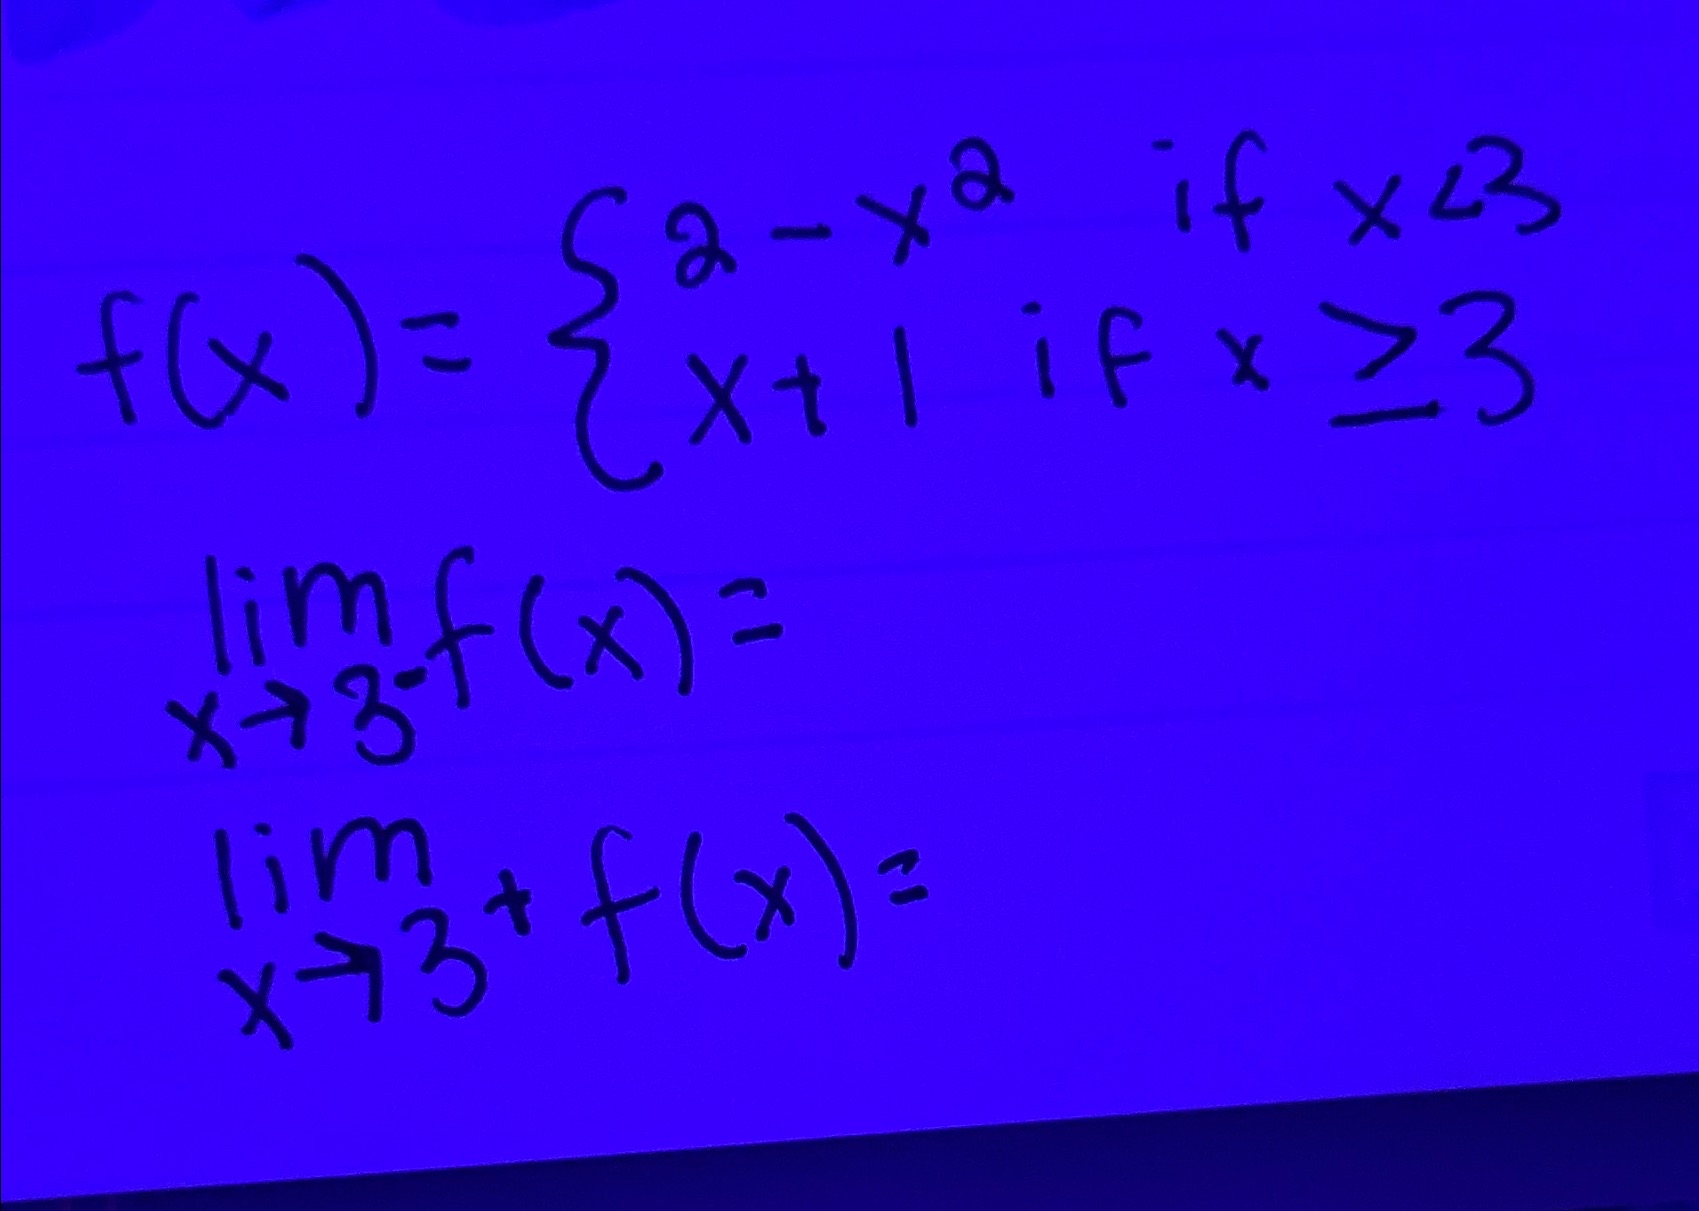 f(x) = { 2 - x² if x < 3
x + 1 if x ≥ 3
lim x→3⁻ f(x) =
lim x→3⁺ f(x) =